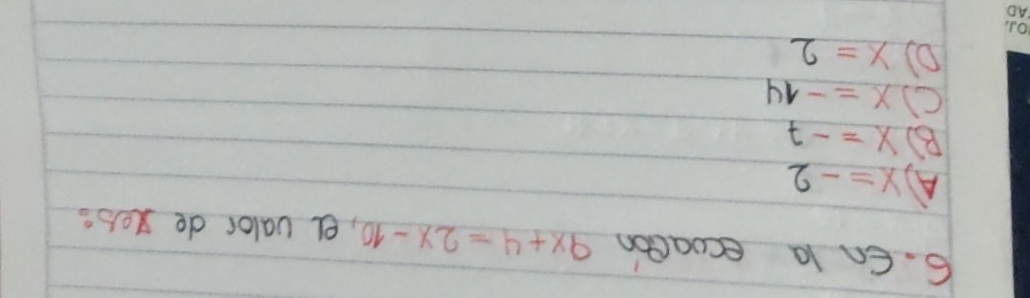 6. En la ecuación 9x+4=2x-10, el valor de x es:
A) x = -2
B) x = -7
C) x = -14
D) x = 2